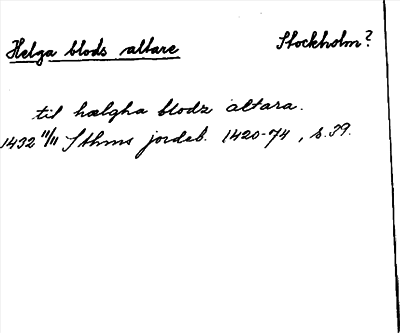 Helga blods altare Stockholm?
til hælgha blodz altara.
1432 11/11 Sthms jordeb. 1420-74, s. 39.